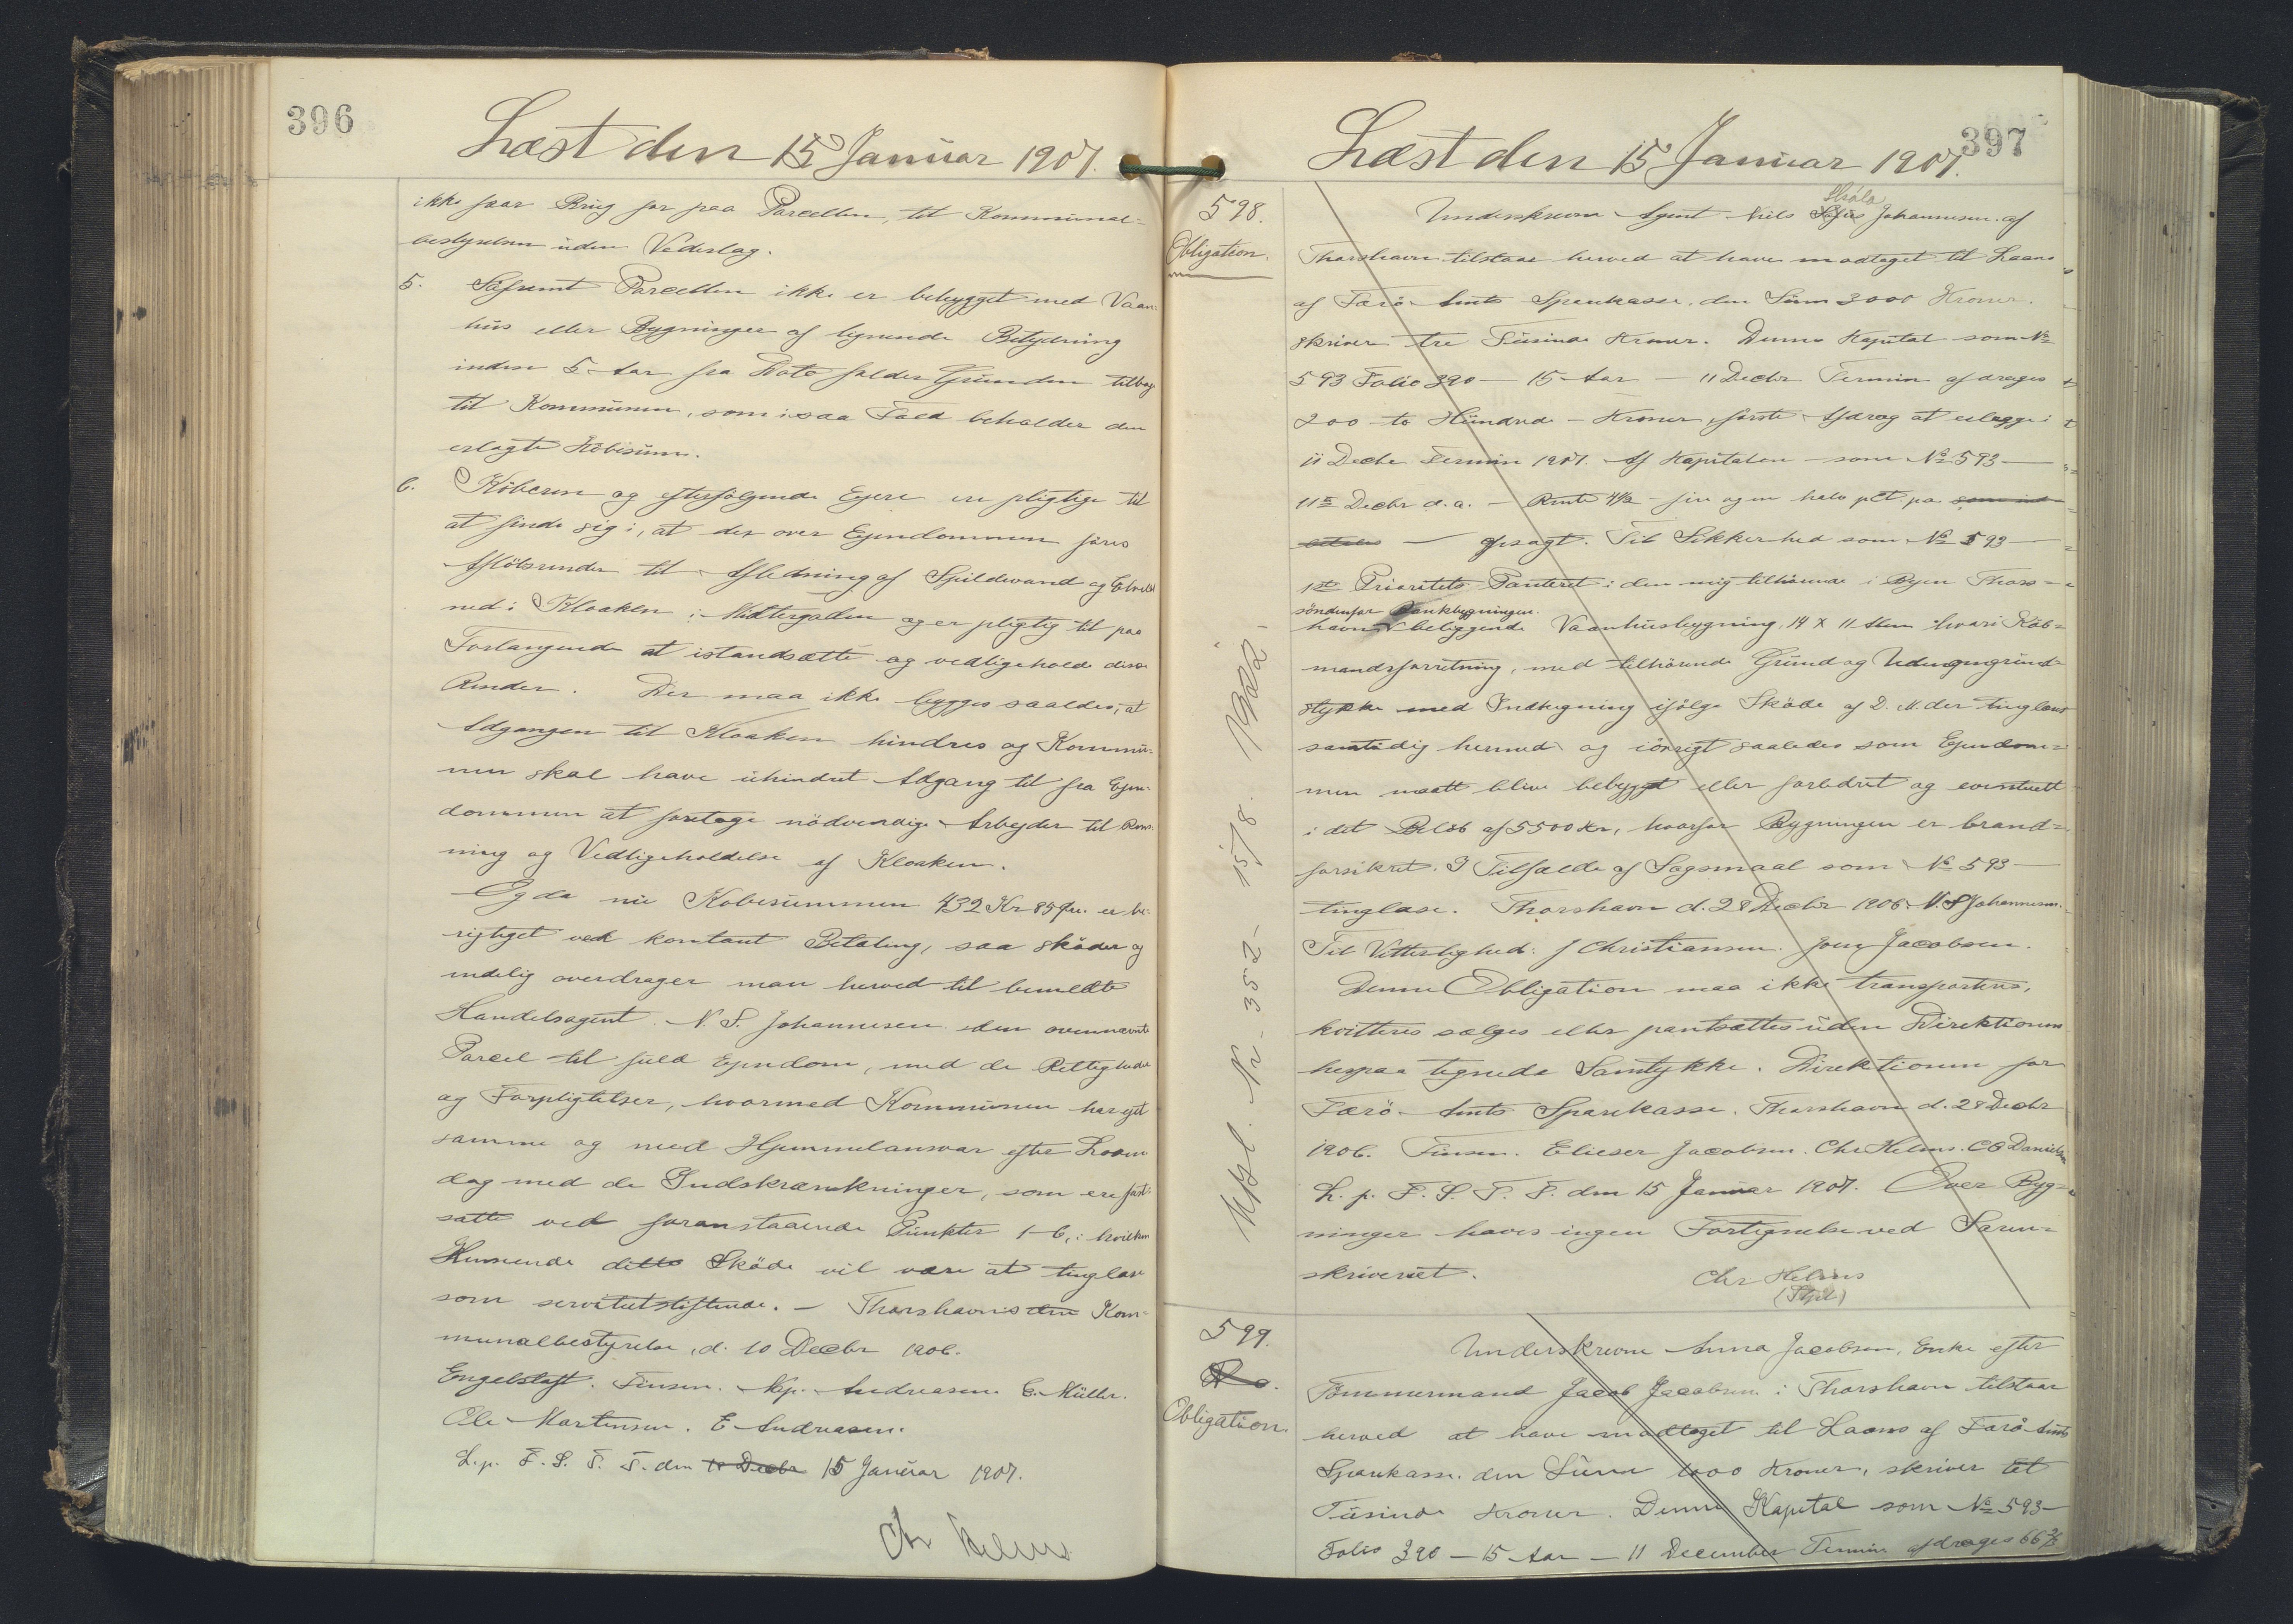 396
Læst den 15 Januar 1907.
ikke faar Brug for paa Parcellen, til Kommunal-
bestyrelsen uden Vederlag.
5. Såfremt Parcellen ikke er bebygget med Vaan-
hus eller Bygninger af lignende Betydning
inden 5 Aar fra Dato falder Grunden tilbage
til Kommunen, som i saa Fald beholder den
erlagte Købesum.
6. Køberen og efterfølgende Ejere ere pligtige til
at finde sig i, at der over Ejendommen føres
Afløbsrender til Afledning af Spildevand og
ned i Kloaken i Midtergaden og er pligtig til paa
Forlangende at istandsætte og vedligeholde disse
Render. Der maa ikke bygges saaledes, at
Adgangen til Kloaken hindres og Kommu-
nen skal have uhindret Adgang til fra Ejen-
dommen at foretage nödvendige Arbejder til Rens-
ning og Vedligeholdelse af Kloaken.
Og da nu Købesummen 432 Kr 85 Øre er be-
rigtiget ved kontant Betaling, saa skøder og
endelig overdrager man herved til bemeldte
Handelsagent N. S. Johannesen den ovennævnte
Parcel til fuld Ejendom, med de Rettigheder
og Forpligtelser, hvormed Kommunen har ejet
samme og med Hjemmelansvar efter Loven
dog med de Indskrænkninger, som ere fast-
satte ved foranstaaende Punkter 1-6, i hvilken
Henseende dette Skøde vil være at tinglæse
som servitutstiftende. — Thorshavns den Kom-
munalbestyrelse, d. 10 Decbr 1906.
Engelstoft. Finsen. Np. Andreasen. C. Müller.
Ole Mortensen. E Andreasen.
L. p. F. S. T. T. den 10 Decbr 15 Januar 1907.
Chr Helms
397
Læst den 15 Januar 1907.
598.
Obligation.
Skåla
Underskrevne Agent Niels Johannesen af
Thorshavn tilstaar herved at have modtaget til Laans
af Færø Amts Sparekasse, den Sum 3000 Kroner.
skriver tre Tusinde Kroner. Denne Kapital som No
593 Folio 390 — 15 Aar — 11 Decbr Termin afdrages
200 to Hundrede — Kroner, første Afdrag at erlægge i
11 Decbr Termin 1907. Af Kapitalen som No 593 —
11te Decbr d.a. — Rente 4½ fire og en halv pCt pa som ind-
betales — opsagt. Til Sikkerhed som No 593 —
1ste Prioritets Panteret i den mig tilhørende i Byen Thors-
søndenfor Bankbygningen.
havn beliggende Vaanhusbygning, 14 x 11 Alen hvori Køb-
mandsforretning, med tilhørende Grund og Udengsgrund-
stykke med Indhegning ifølge Skøde af D. M. der tinglæses
samtidig hermed og iøvrigt saaledes som Ejendom-
men maatte blive bebygget eller forbedret og eventuelt
i det Beløb af 5500 Kr, hvorfor Bygningen er brand-
forsikret. I Tilfælde af Søgsmaal som No 593 —
tinglæse. Thorshavn d. 28 Decbr 1906. N. S Johannesen.
Til Vitterlighed: J Christiansen. Joen Jacobsen.
Denne Obligation maa ikke transporteres,
kvitteres sælges eller pantsættes uden Direktionens
herpaa tegnede Samtykke. Direktionen for
Færø Amts Sparekasse. Thorshavn d. 28 Decbr
1906. Finsen. Elieser Jacobsen. Chr Helms. C E Danielsen
L. p. F. S. T. T. den 15 Januar 1907. Over Byg-
ninger haves ingen Fortegnelse ved Soren-
skriveriet.
Chr Helms
Udsl. Nr. 352 - 15/8. 1922.
599.
Obligation.
Underskrevne Anna Jacobsen, Enke efter
Tømmermand Jacob Jacobsen i Thorshavn tilstaar
herved at have modtaget til Laans af Færø Amts
Sparekasse, den Sum 1000 Kroner, skriver et
Tusinde Kroner. Denne Kapital som No 593 —
Folio 390 — 15 Aar — 11 December Termin afdrages 66 2/3